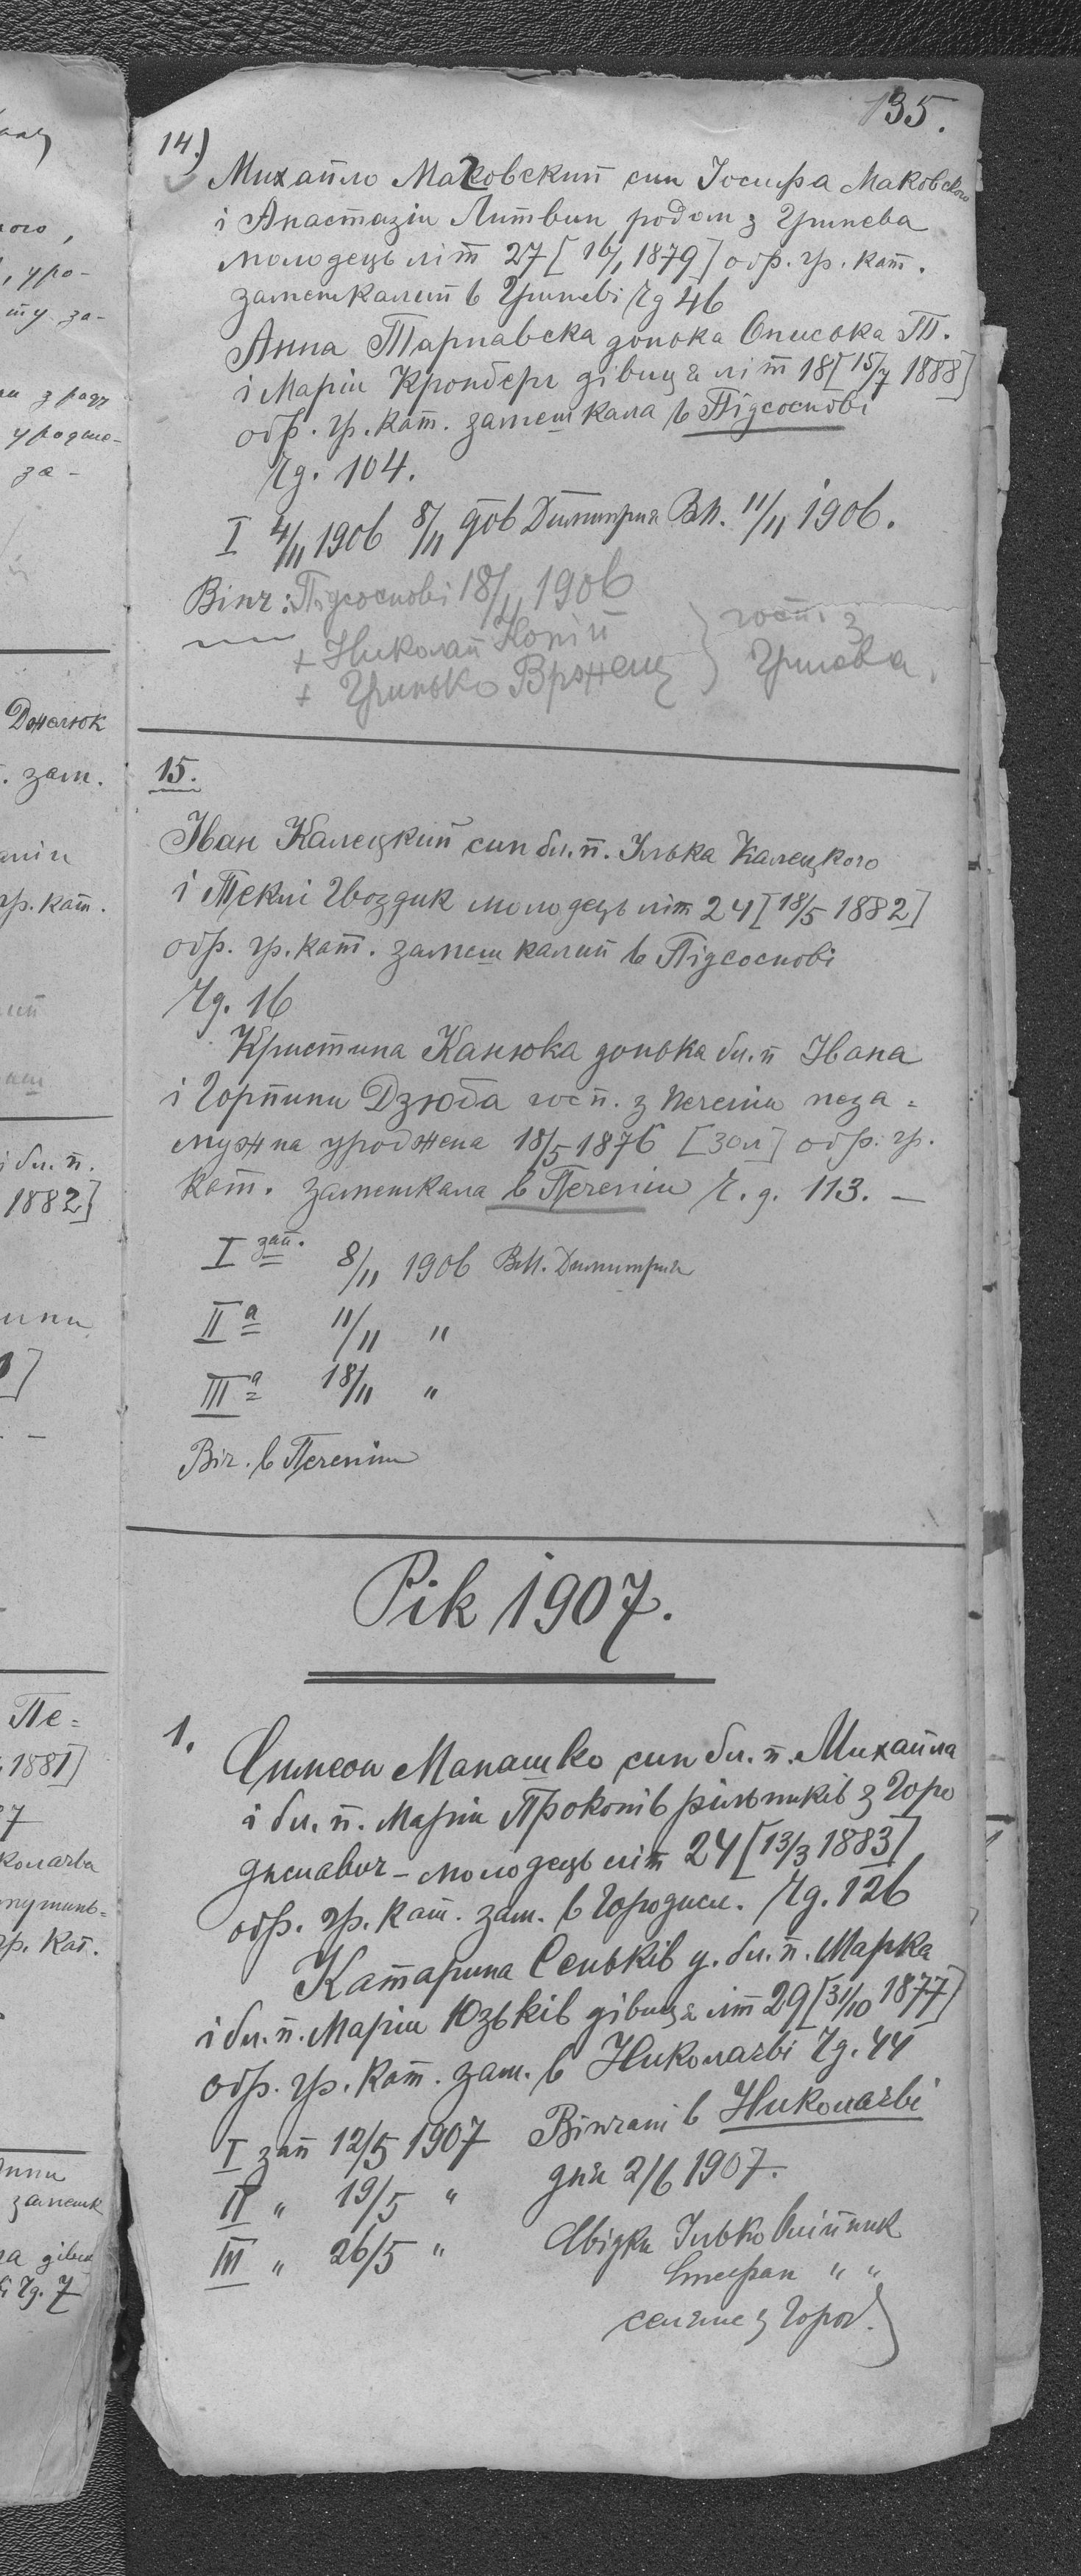 135.
14.)
Михайло Маковский син Йосифа Маковского
і Анастазіи Литвин, родом з Гринева
молодець літ 27 [16/1 1879] обр. гр. кат.
замешкалий в Гриневі Чд 46
Анна Тарнавска донька Ониська Т.
і Маріи Кронберг дівиця літ 18 [15/7 1888]
обр. гр. кат. замешкала в Підсоснові
Чд. 104.
I 4/11 1906 8/11 Димитрия Вм. 11/11 1906.
Вінч: Підсоснові 18/11 1906
+ Николай Копій
+ Гринько
госп. з
Гринева
15.
Іван Калецкий син бл. п. Илька Калецкого
і Теклі Гвоздик молодець літ 24 [18/5 1882]
обр. гр. кат. замешкалий в Підсоснові
Чд. 16
Кристина Канюка донька бл. п Івана
і Горпини Дзюба госп. з Печенiи неза=
мужна уроджена 18/5 1876 [30л] обр. гр.
кат. замешкала в Печеніи Ч. д. 113. —
I зап. 8/11 1906 Вм. Димитрия
II а 11/11 "
III а 18/11 "
Віч. в Печеніи
Рік 1907.
1.
Симеон Манашко син бл. п. Михайла
і бл. п. Маріи Прокопів рільників з Горо
диславич - молодець літ 24 [13/3 1883]
обр. гр. кат. зам. в Городисл. Чд. 126
Катарина Сеньків д. бл. п. Марка
і бл. п. Маріи Юзьків дівиця літ 29 [31/10 1877]
обр. гр. кат. зам. в Николаєві Чд. 44
I зап 12/5 1907 Вінчані в Николаєві
II " 19/5 " дня 2/6 1907.
III " 26/5 " Свідки Илько Олійник
Стефан " "
селяне з Город.